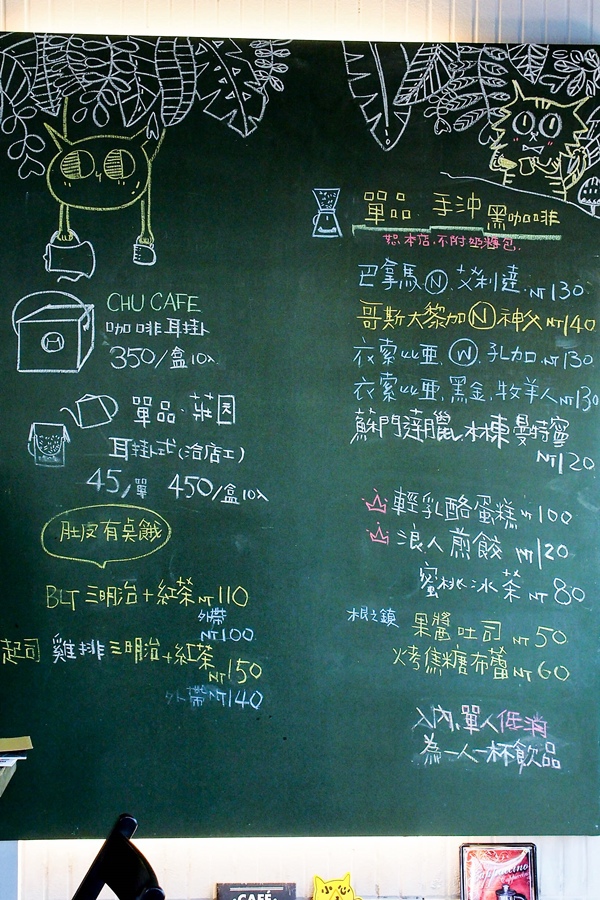 CHU CAFE
咖啡耳掛
350/盒10入
單品·莊園
耳掛式(洽店工)
45/單 450/盒10入
肚皮有桌餓
BLT 三明治+紅茶 NT 110
外帶
NT 100
起司 雞排三明治+紅茶
NT 150
外帶 NT 140
單品·手沖 黑咖啡
恕本店,不附奶糖包.
巴拿馬 N. 艾利達. NT 130
哥斯大黎加 N 神父 NT 140
衣索比亜, W, 孔加. NT 130
衣索比亜, 黑金, 牧羊人 NT 130
蘇門達臘, 林東曼特寧
NT 120
輕乳酪蛋糕 NT 100
浪人煎餃 NT 120
蜜桃冰茶 NT 80
根之鎮 果醬吐司 NT 50
烤焦糖布蕾 NT 60
入內,單人低消
為一人一杯飲品
CAFÉ
小心
Cappuccino